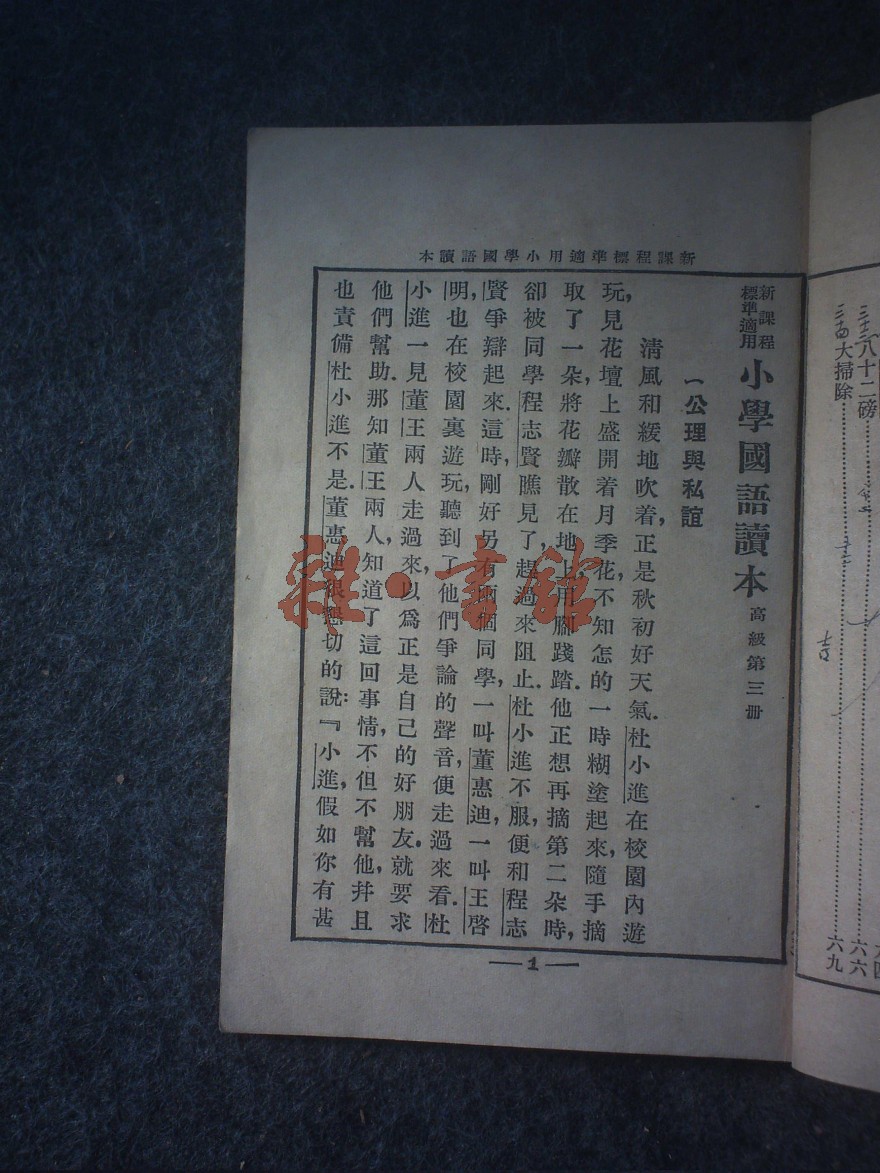 新課程標準適用小學國語讀本
新課程
標準適用
小學國語讀本
高級第三册
一 公理與私誼
清風和緩地吹着,正是秋初好天氣.杜小進在校園內遊
玩,見花壇上盛開着月季花,不知怎的一時糊塗起來,隨手摘
取了一朵,將花瓣散在地上,用腳踐踏.他正想再摘第二朵時,
卻被同學程志賢瞧見了,趕過來阻止.杜小進不服,便和程志
賢爭辯起來.這時,剛好另有兩個同學,一叫董惠迪,一叫王啓
明,也在校園裏遊玩,聽到了他們爭論的聲音,便走過來看.杜
小進一見董王兩人走過來,以爲正是自己的好朋友.就要求
他們幫助.那知董王兩人,知道了這回事情,不但不幫他,幷且
也責備杜小進不是.董惠迪很懇切的說:『小進,假如你有甚
1
八十二磅
六六
大掃除
六九
雜·書館